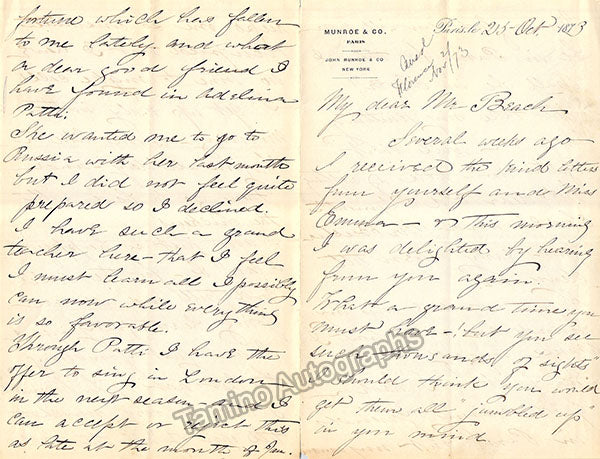 MUNROE & CO.
PARIS
JOHN MUNROE & CO
NEW YORK
Paris le 25 Oct 1873
Ansd
Florence
Nov /73
My dear Mr Beach
Several weeks ago
I received the kind letters
from yourself and Miss
Emma - & this morning
I was delighted by hearing
from you again.
What a grand time you
must have - but you see
such thousands of "sights"
I should think you would
get them all "jumbled up"
in your mind
fortune which has fallen
to me lately. and what
a dear good friend I
have found in Adelina
Patti.
She wanted me to go to
Russia with her last month
but I did not feel quite
prepared so I declined.
I have such a grand
teacher here - that I feel
I must learn all I possibly
can now while everything
is so favorable.
Through Patti I have the
offer to sing in London
in the next season - and I
can accept or reject this
as late as the month of Jan.
Tamino Autographs